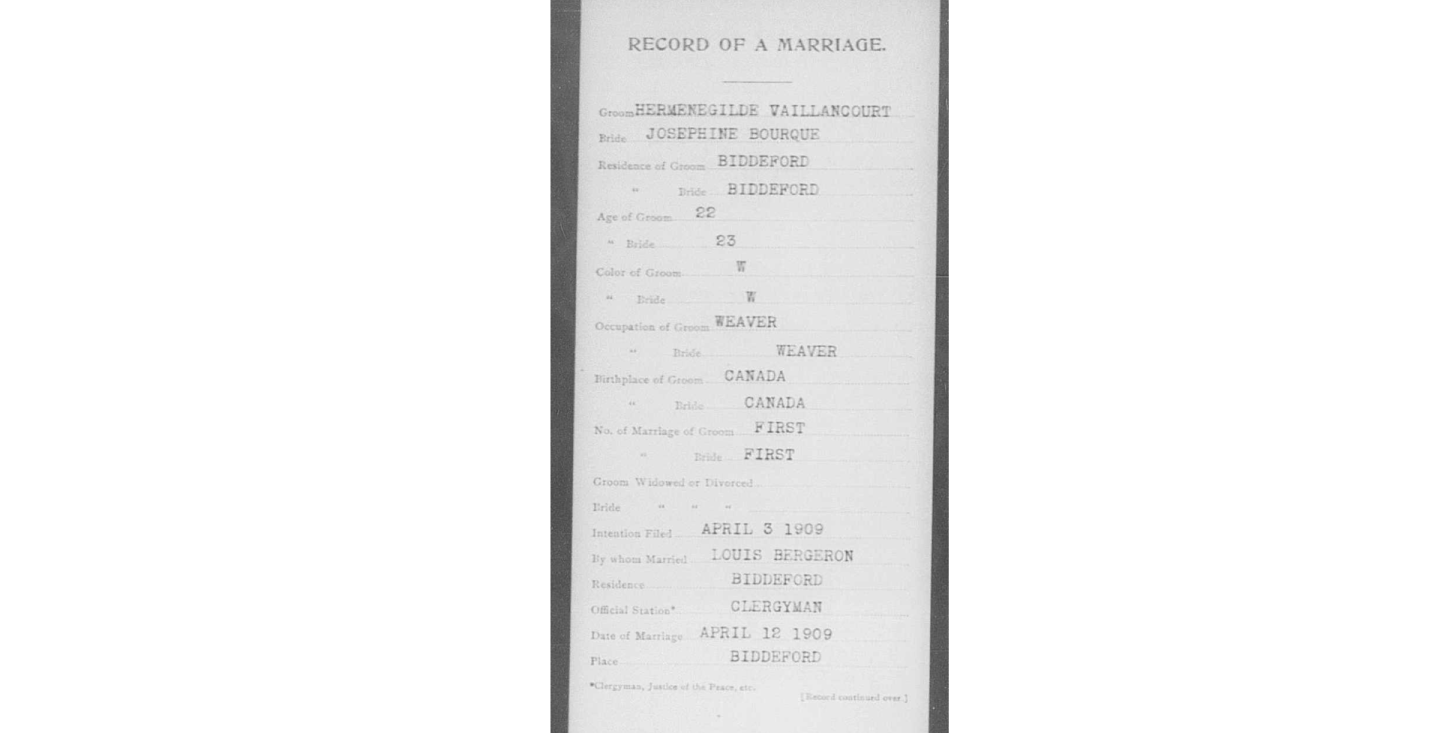 RECORD OF A MARRIAGE.
Groom HERMENEGILDE VAILLANCOURT
Bride JOSEPHINE BOURQUE
Residence of Groom BIDDEFORD
" Bride BIDDEFORD
Age of Groom 22
" Bride 23
Color of Groom W
" Bride W
Occupation of Groom WEAVER
" Bride WEAVER
Birthplace of Groom CANADA
" Bride CANADA
No. of Marriage of Groom FIRST
" Bride FIRST
Groom Widowed or Divorced
Bride " " "
Intention Filed APRIL 3 1909
By whom Married LOUIS BERGERON
Residence BIDDEFORD
Official Station* CLERGYMAN
Date of Marriage APRIL 12 1909
Place BIDDEFORD
*Clergyman, Justice of the Peace, etc.
[Record continued over.]